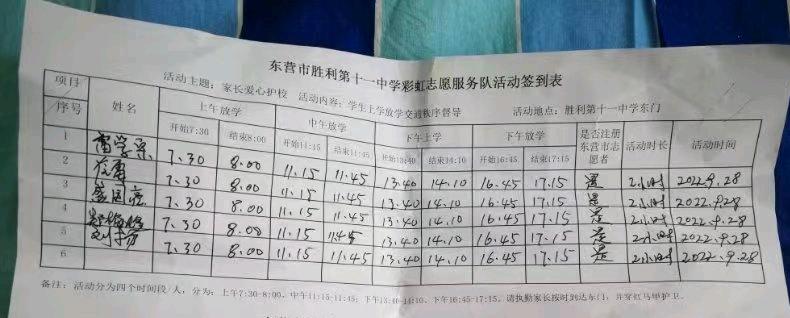 东营市胜利第十一中学彩虹志愿服务队活动签到表
活动主题：家长爱心护校 活动内容：学生上学放学交通秩序督导 活动地点：胜利第十一中学东门
项目 序号 姓名 上午放学 中午放学 下午上学 下午放学 是否注册东营市志愿者 活动时长 活动时间
开始7:30 结束8:00 开始11:15 结束11:45 开始13:40 结束14:10 开始16:45 结束17:15
1 7.30 8.00 11.15 11.45 13.40 14.10 16.45 17.15 是 2小时 2022.9.28
2 7.30 8.00 11.15 11.45 13.40 14.10 16.45 17.15 是 2小时 2022.9.28
3 7.30 8.00 11.15 11.45 13.40 14.10 16.45 17.15 是 2小时 2022.9.28
4 7.30 8.00 11.15 11.45 13.40 14.10 16.45 17.15 是 2小时 2022.9.28
5 7.30 8.00 11.15 11.45 13.40 14.10 16.45 17.15 是 2小时 2022.9.28
6
备注：活动分为四个时间段/人，分为：上午7:30-8:00、中午11:15-11:45；下午13:40-14:10、下午16:45-17:15。请执勤家长按时到达东门，并穿红马甲护卫。